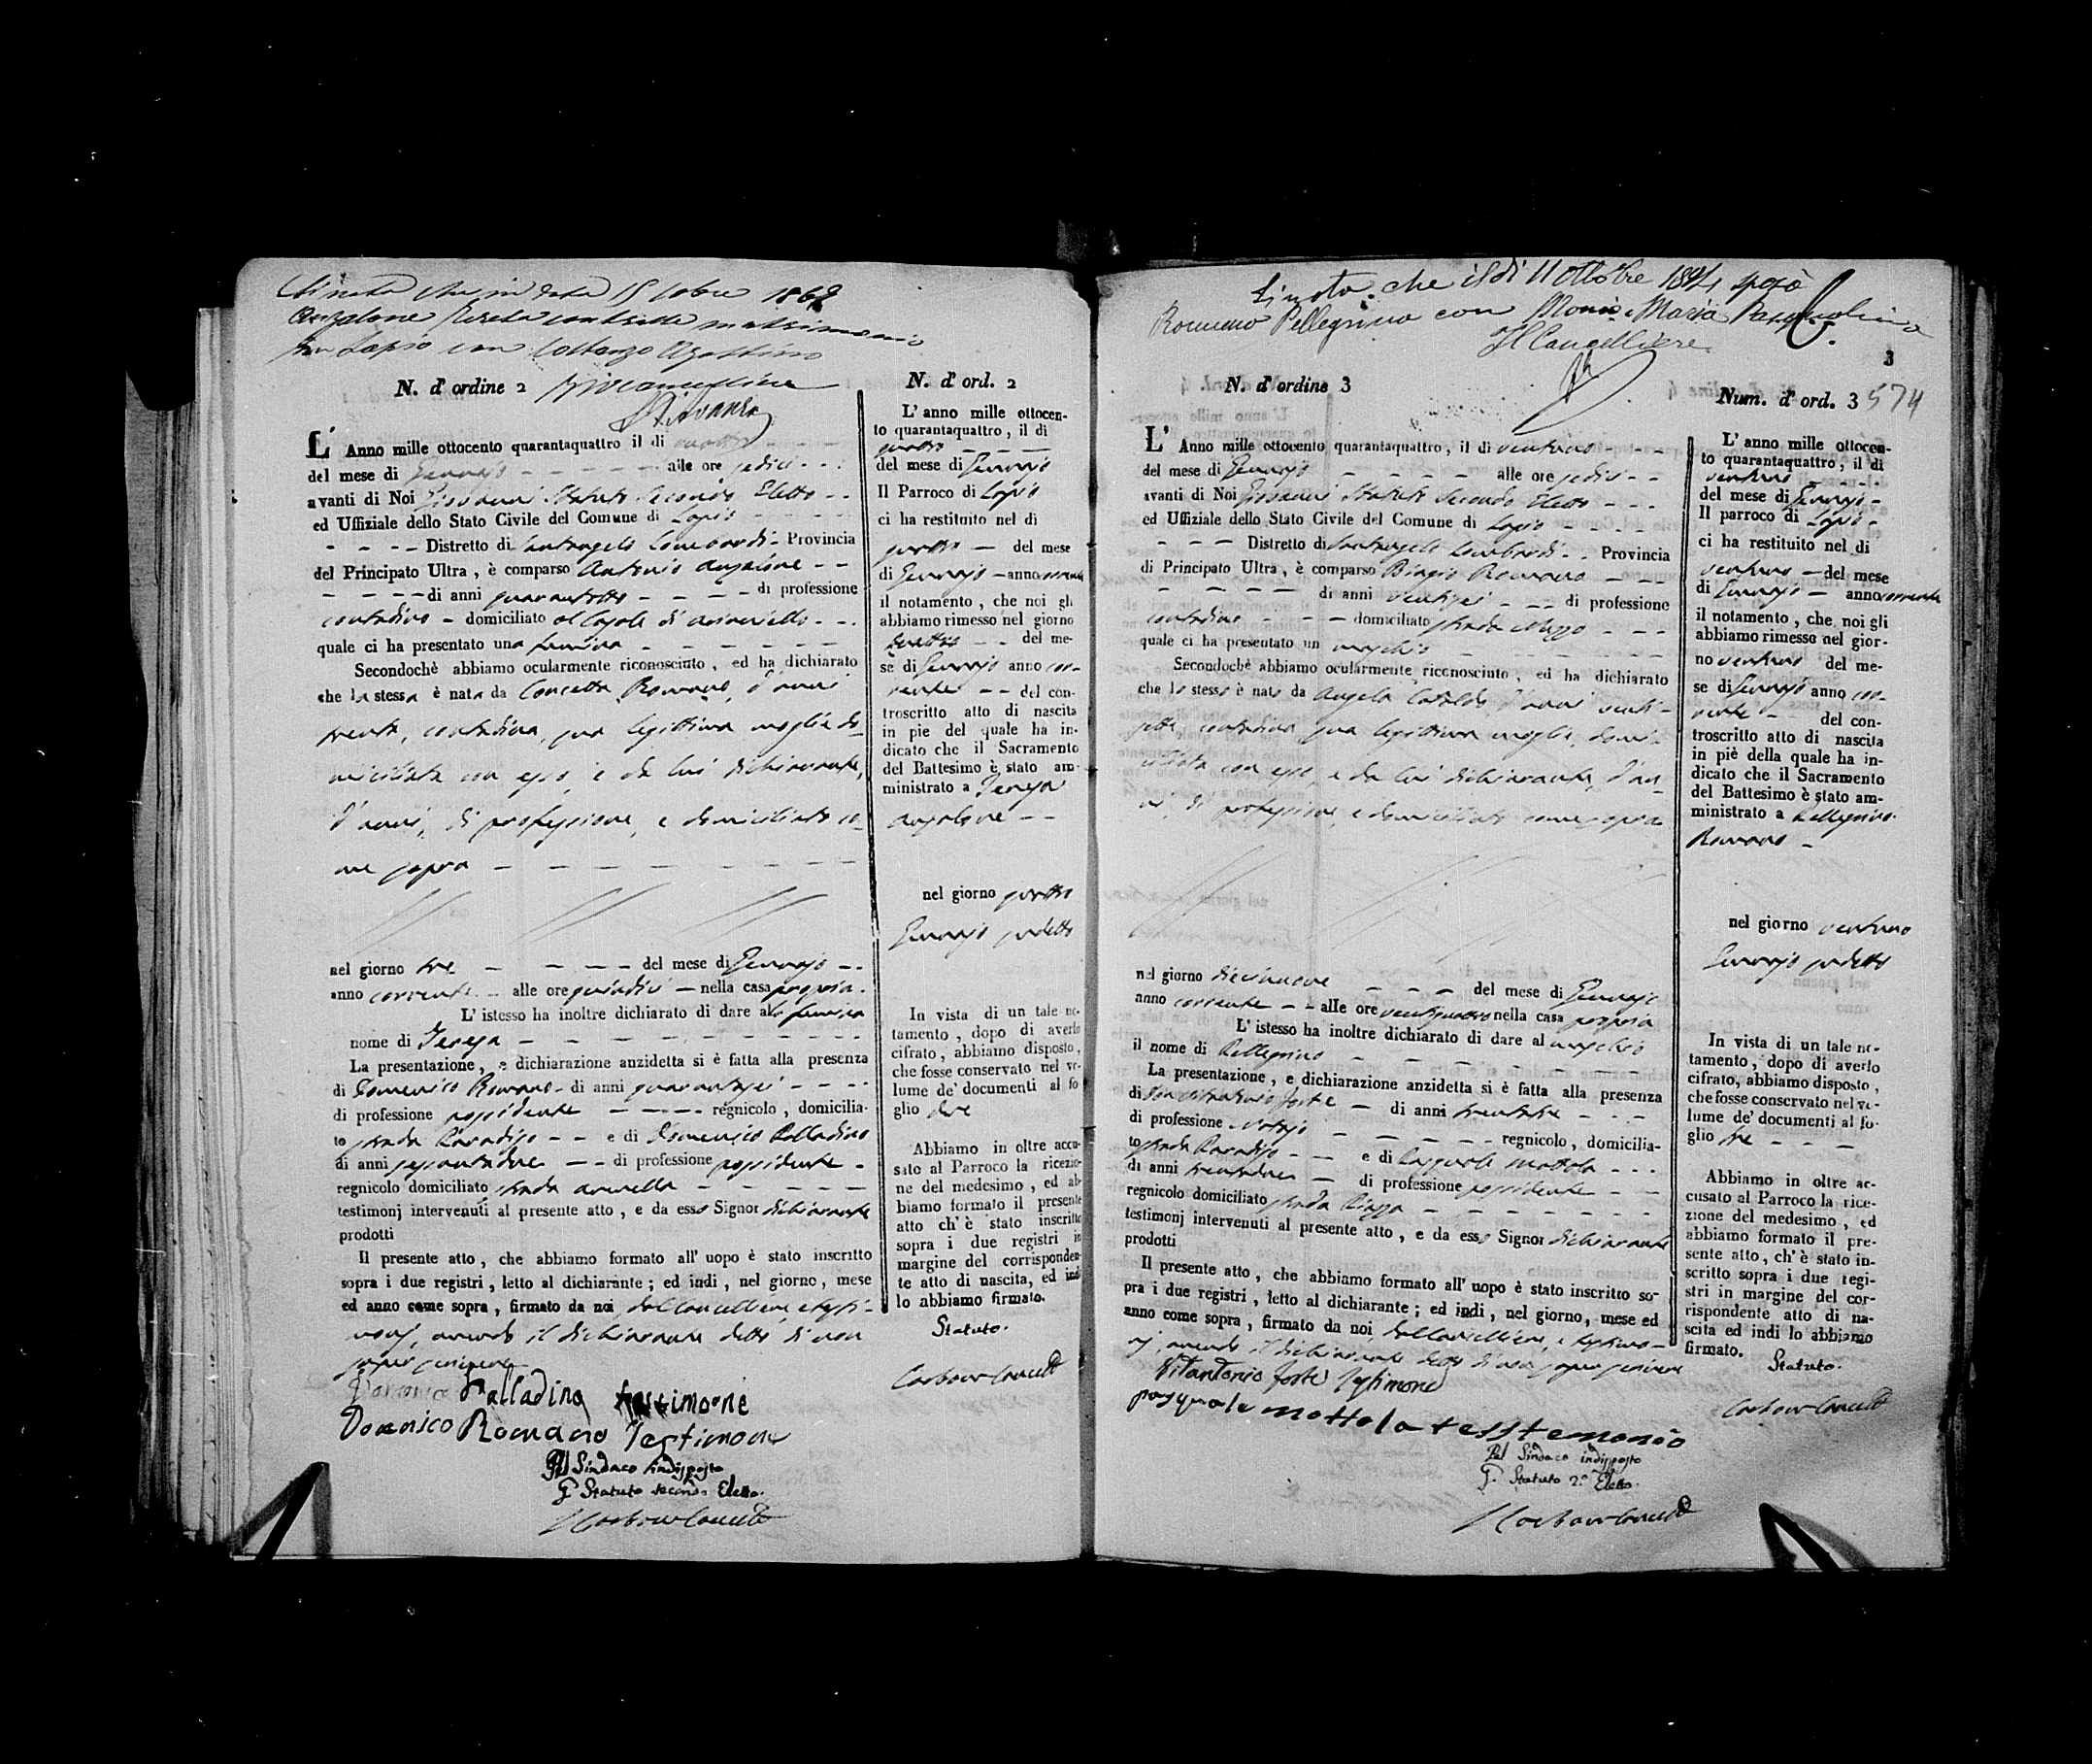 Si nota che in data 15 8obre 1862
Anzalone Teresa contrasse matrimonio
in Lapio con Costanzo Agostino
N. d' ordine 2
L' Anno mille ottocento quarantaquattro il dì quattro
del mese di Gennajo alle ore sedici
avanti di Noi Giovanni Statuto Secondo Eletto
ed Uffiziale dello Stato Civile del Comune di Lapio
Distretto di Santangelo Lombardi Provincia
del Principato Ultra, è comparso Antonio Anzalone
di anni quarantotto di professione
contadino domiciliato al Casale di
quale ci ha presentato una femina
Secondochè abbiamo ocularmente riconosciuto, ed ha dichiarato
che la stessa è nata da Concetta Romano, d'anni
trenta, contadina, sua legittima moglie do-
miciliata con esso, e da lui dichiarante,
d'anni, di professione, e domiciliato co-
me sopra
nel giorno tre del mese di Gennajo
anno corrente alle ore quindici nella casa propria
L' istesso ha inoltre dichiarato di dare alla femina
nome di Teresa
La presentazione, e dichiarazione anzidetta si è fatta alla presenza
di Domenico Romano di anni quarantasei
di professione possidente regnicolo, domicilia-
to strada Paradiso e di Domenico Palladino
di anni sessantadue di professione possidente
regnicolo domiciliato strada
testimonj intervenuti al presente atto, e da esso Signor dichiarante
prodotti
Il presente atto, che abbiamo formato all' uopo è stato inscritto
sopra i due registri, letto al dichiarante; ed indi, nel giorno, mese
ed anno come sopra, firmato da noi, dal Cancelliere, e testi-
monj, avendo il dichiarante detto di non
saper scrivere
Domenico Palladino testimone
Domenico Romano Testimone
Pel Sindaco indisposto
G. Statuto secondo Eletto.
N. d' ord. 2
L' anno mille ottocen-
to quarantaquattro, il dì
quattro
del mese di Gennajo
Il Parroco di Lapio
ci ha restituito nel dì
quattro del mese
di Gennajo anno corrente
il notamento, che noi gli
abbiamo rimesso nel giorno
quattro del me-
se di Gennajo anno cor-
rente del con-
troscritto atto di nascita
in pie del quale ha in-
dicato che il Sacramento
del Battesimo è stato am-
ministrato a Teresa
Anzalone
nel giorno quattro
Gennajo sudetto
In vista di un tale no-
tamento, dopo di averlo
cifrato, abbiamo disposto,
che fosse conservato nel vo-
lume de' documenti al fo
glio due
Abbiamo in oltre accu-
sato al Parroco la ricezio-
ne del medesimo, ed ab-
biamo formato il presente
atto ch' è stato inscritto
sopra i due registri in
margine del corrisponden-
te atto di nascita, ed indi
lo abbiamo firmato.
Statuto.
Si nota che il dì 11 Ottobre 1874 sposò
Romano Pellegrino con Maria
Il Cancelliere
3
N. d' ordine 3
L' Anno mille ottocento quarantaquattro, il dì ventuno
del mese di Gennajo alle ore sedici
avanti di Noi Giovanni Statuto Secondo Eletto
ed Uffiziale dello Stato Civile del Comune di Lapio
Distretto di Santangelo Lombardi Provincia
di Principato Ultra, è comparso Biagio Romano
di anni ventisei di professione
contadino domiciliato strada Mezzo
quale ci ha presentato un maschio
Secondochè abbiamo ocularmente riconosciuto, ed ha dichiarato
che lo stesso è nato da Angela Cataldo, d'anni venti-
sette, contadina sua legittima moglie, domi-
ciliata con esso, e da lui dichiarante, d'an-
ni, di professione, e domiciliato come sopra
nel giorno diecinnove del mese di Gennajo
anno corrente alle ore ventiquattro nella casa propria
L' istesso ha inoltre dichiarato di dare al maschio
il nome di Pellegrino
La presentazione, e dichiarazione anzidetta si è fatta alla presenza
di Don Vitantonio Forte di anni trentatre
di professione Notajo regnicolo, domicilia-
to strada Paradiso e di Pasquale Mottola
di anni trentadue di professione possidente
regnicolo domiciliato strada Piazza
testimonj intervenuti al presente atto, e da esso Signor dichiarante
prodotti
Il presente atto, che abbiamo formato all' uopo è stato inscritto so-
pra i due registri, letto al dichiarante; ed indi, nel giorno, mese ed
anno come sopra, firmato da noi, dal Cancelliere, e testimo-
nj, avendo il dichiarante detto di non saper scrivere
Vitantonio Forte Testimone
pasquale mottola tesstemonio
Pel Sindaco indisposto
G. Statuto 2.º Eletto.
Num. d' ord. 3 574
L' anno mille ottocen-
to quarantaquattro, il dì
ventuno
del mese di Gennajo
Il parroco di Lapio
ci ha restituito nel dì
ventuno del mese
di Gennajo anno corrente
il notamento, che noi gli
abbiamo rimesso nel gior-
no ventuno del me-
se di Gennajo anno cor-
rente del con-
troscritto atto di nascita
in piè della quale ha in-
dicato che il Sacramento
del Battesimo è stato am-
ministrato a Pellegrino
Romano
nel giorno ventuno
Gennajo sudetto
In vista di un tale no-
tamento, dopo di averlo
cifrato, abbiamo disposto,
che fosse conservato nel vo-
lume de' documenti al fo-
glio tre
Abbiamo in oltre ac-
cusato al Parroco la rice-
zione del medesimo, ed
abbiamo formato il pre-
sente atto, ch' è stato in-
scritto sopra i due regi-
stri in margine del cor-
rispondente atto di na-
scita ed indi lo abbiamo
firmato.
Statuto.